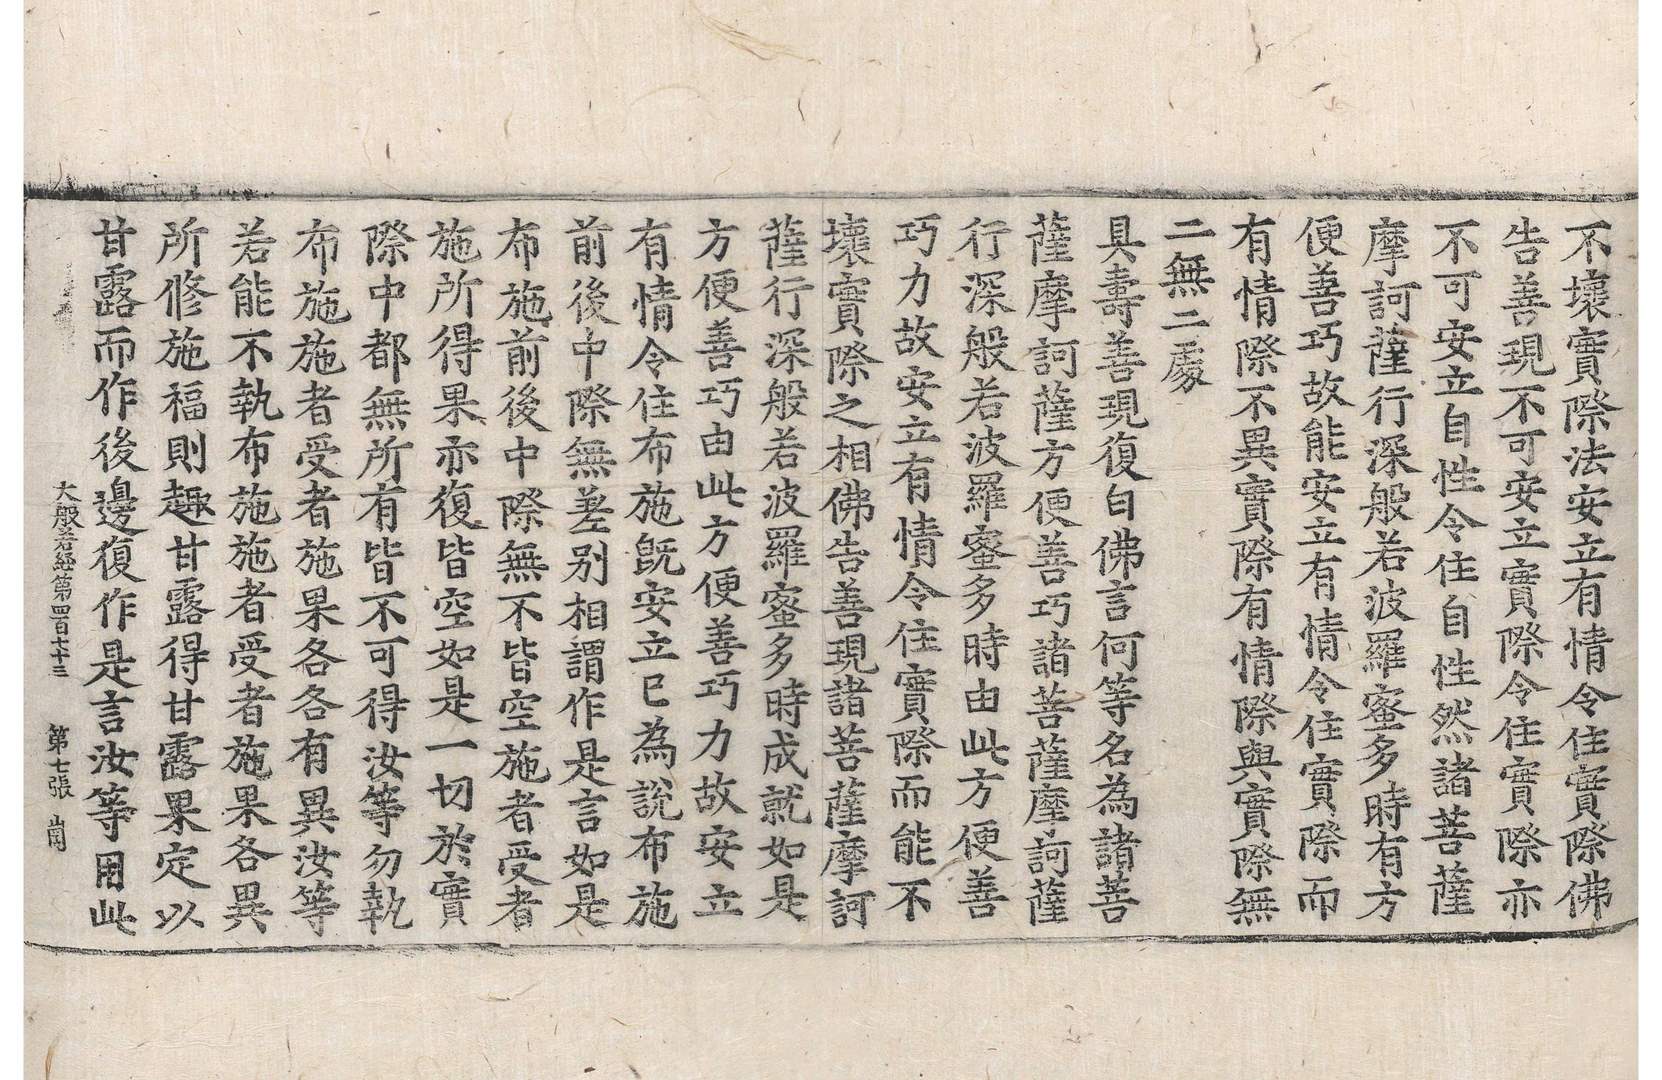 不壞實際法安立有情令住實際佛
告善現不可安立實際令住實際亦
不可安立自性令住自性然諸菩薩
摩訶薩行深般若波羅蜜多時有方
便善巧故能安立有情令住實際而
有情際不異實際有情際與實際無
二無二處
具壽善現復白佛言何等名為諸菩
薩摩訶薩方便善巧諸菩薩摩訶薩
行深般若波羅蜜多時由此方便善
巧力故安立有情令住實際而能不
壞實際之相佛告善現諸菩薩摩訶
薩行深般若波羅蜜多時成就如是
方便善巧由此方便善巧力故安立
有情令住布施既安立已為說布施
前後中際無差別相謂作是言如是
布施前後中際無不皆空施者受者
施所得果亦復皆空如是一切於實
際中都無所有皆不可得汝等勿執
布施施者受者施果各各有異汝等
若能不執布施施者受者施果各異
所修施福則趣甘露得甘露果定以
甘露而作後邊復作是言汝等用此
大般若經第四百七十三 第七張 崗